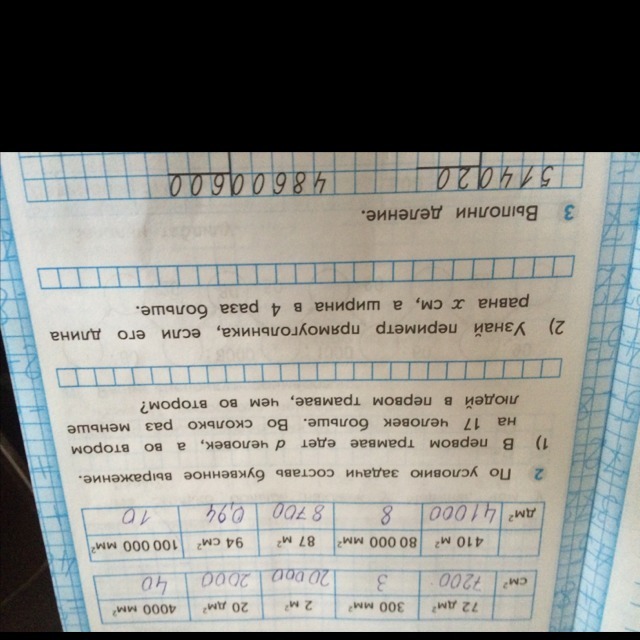 72 дм² 300 мм² 2 м² 20 дм² 4000 мм²
см² 7200 3 20 000 2000 40
410 м² 80 000 мм² 87 м² 94 см² 100 000 мм²
дм² 41000 8 8700 0,94 10
2 По условию задачи составь буквенное выражение.
1) В первом трамвае едет d человек, а во втором
на 17 человек больше. Во сколько раз меньше
людей в первом трамвае, чем во втором?
2) Узнай периметр прямоугольника, если его длина
равна x см, а ширина в 4 раза больше.
3 Выполни деление.
514020 4860060 0